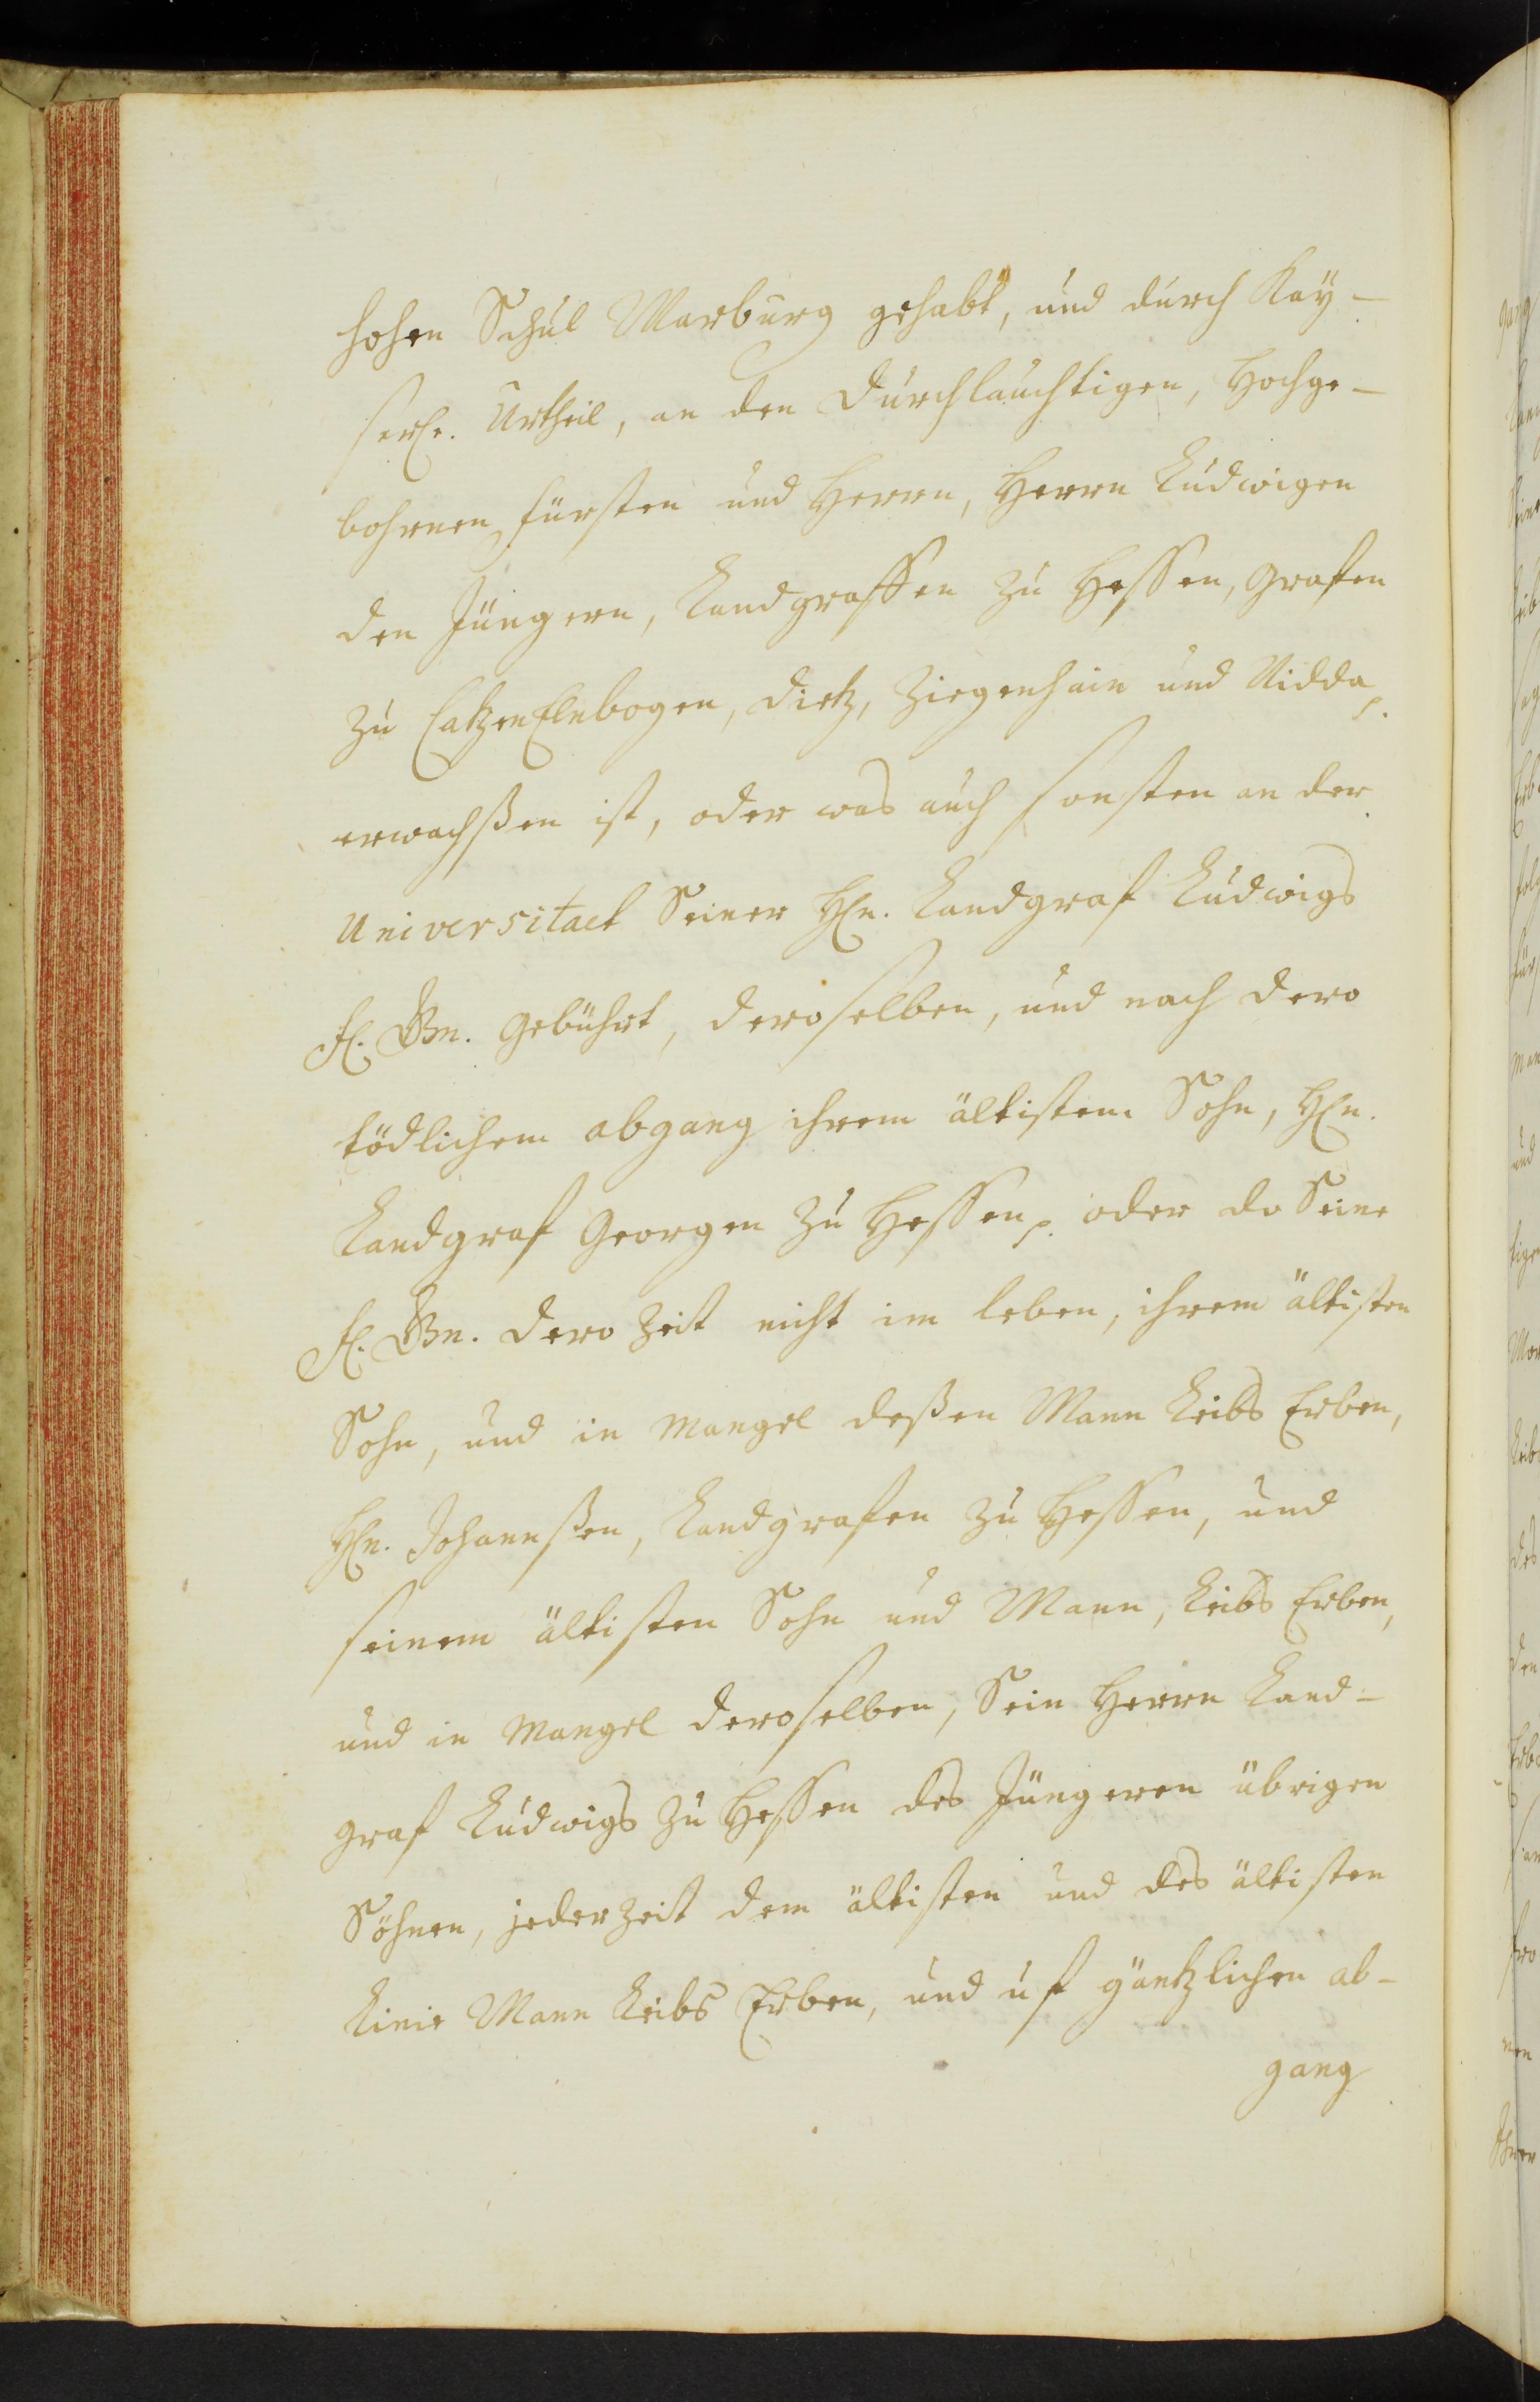 hohen Schul Marburg gehabt, und durch Kay-
serl. Urtheil, an den Durchlauchtigen, Hochge-
bohrnen Fürsten und Herrn, Herrn Ludwigen
den Jüngern, Landgraffen zu Hessen, Grafen
zu CatzenElnbogen, Dietz, Ziegenhain und Nidda p.
erwachßen ist, oder was auch sonsten an der
Universitaet Seiner Hln. Landgraf Ludwigs
fl. Gn. gebührt, deroselben, und nach dero
tödlichem abgang ihrem ältistem Sohn, Hln.
Landgraf Georgen zu Hessen p. oder da Seine
fl. Gn. dero Zeit nicht im leben, ihrem ältisten
Sohn, und in Mangel deßen Mann Leibs Erben,
Hln. Johannßen, Landgrafen zu Hessen, und
seinem ältisten Sohn und Mann, Leibs Erben,
und in Mangel deroselben, Sein Herrn Land-
graf Ludwigs zu Hessen des Jüngeren übrigen
Söhnen, jederzeit dem ältisten und des ältisten
Linie Mann Leibs Erben, und uf gäntzlichen ab-
gang